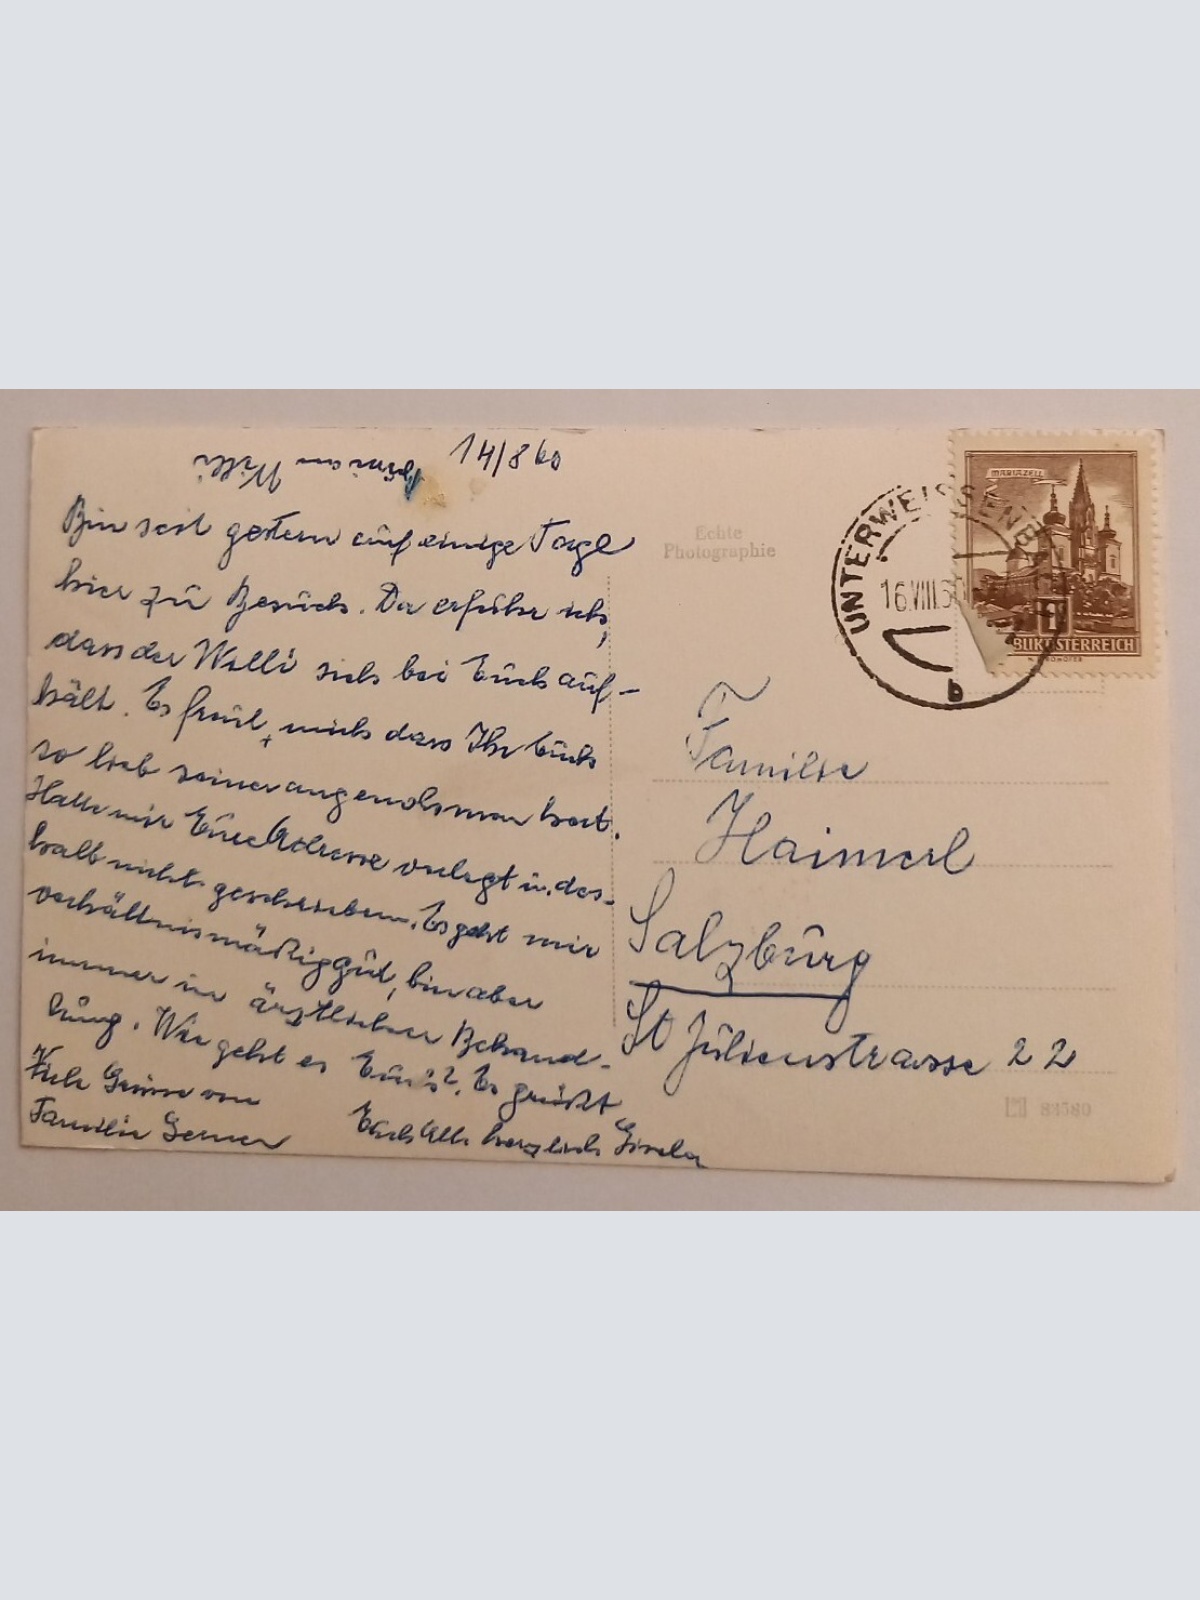 14/8 60
Bin seit gestern auf einige Tage
hier zu Besuch. Da erfuhr ich,
dass der Willi sich bei Euch auf-
hält. Es freut mich dass Ihr Euch
so lieb seiner angenohmen habt.
Hatte mir Eure Adresse verlegt u. des-
halb nicht geschrieben. Es geht mir
verhältnismäßig gut, bin aber
immer in ärztlicher Behand-
lung. Wie geht es Euch? Es grüßt
Euch Alle herzlich Gisela
Viele Grüsse von
Familie Gerner
Willi
Echte
Photographie
UNTERWEISSENB
16.VIII.60
b
MARIAZELL
BLIK ÖSTERREICH
Familie
Haimerl
Salzburg
St Julienstrasse 22
83580